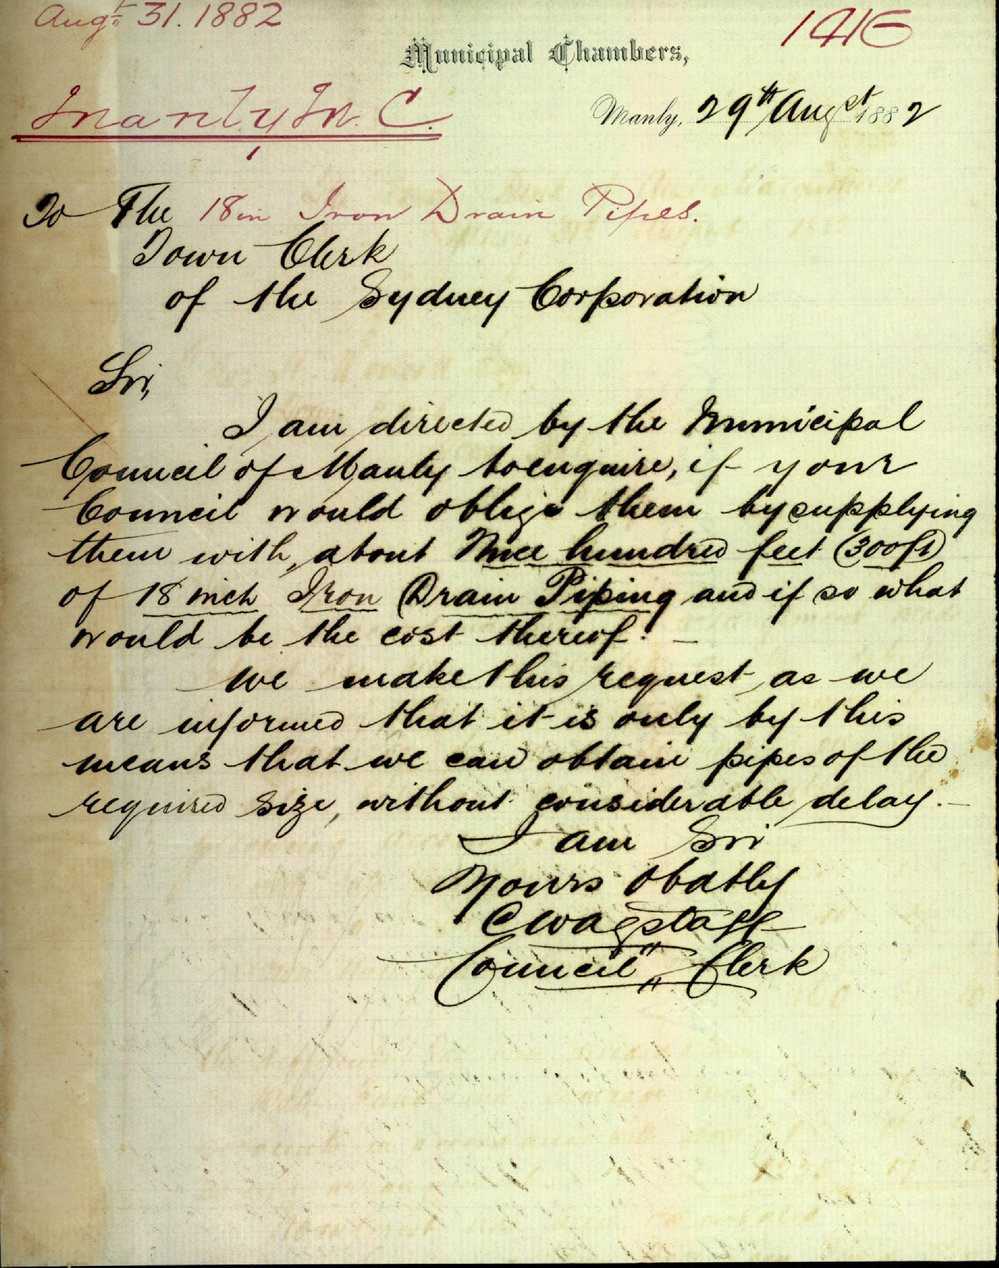 Augt 31. 1882
1416
Municipal Chambers,
Manly M. C.
Manly, 29th Augst 1882
18in Iron Drain Pipes.
To The
Town Clerk
of the Sydney Corporation
Sir,
I am directed by the Municipal
Council of Manly to enquire, if your
Council would oblige them by supplying
them with, about Three hundred feet (300ft)
of 18 inch Iron Drain Piping and if so what
would be the cost thereof. —
We make this request, as we
are informed that it is only by this
means that we can obtain pipes of the
required size, without considerable delay. —
I am Sir
Yours Obdtly
C Wagstaff
Council Clerk